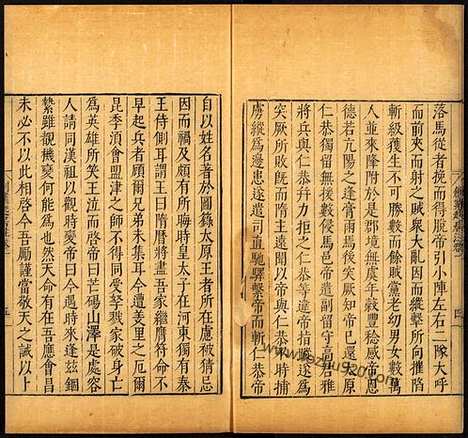 落馬從者挽而得脫帝引小陣左右二隊大呼
而前夾而射之賊衆大亂因而縱擊所向摧陷
斬級獲生不可勝數而餘賊黨老幼男女數萬
人並來降附於是郡境無虞年穀豐稔感帝恩
德若亢陽之逢膏雨馬突厥知帝已還太原
仁恭獨留無援數侵馬邑帝遣副留守高君雅
將兵與仁恭并力拒之仁恭等違帝指蹤遂為
突厥所敗既而隋主以帝與仁恭不時捕
虜縱為邊患遂遣司直馳驛繫帝而斬仁恭帝
自以姓名著於圖籙太原王者所在慮被猜忌
因而禍及頗有所晦時皇太子在河東獨有秦
王侍側耳謂王曰隋曆將盡吾家繼膺符命不
早起兵者顧爾兄弟未集耳今遭羑里之厄爾
昆季須會盟津之師不得同受孥戮家破身亡
為英雄所笑王泣而啓帝曰芒碭山澤是處容
人請同漢祖以觀時變帝曰今遇時來逢兹錮
縶雖覩機變何能為也然天命有在吾應會昌
未必不以此相啓今吾勵謹當敬天之誡以卜
四
五